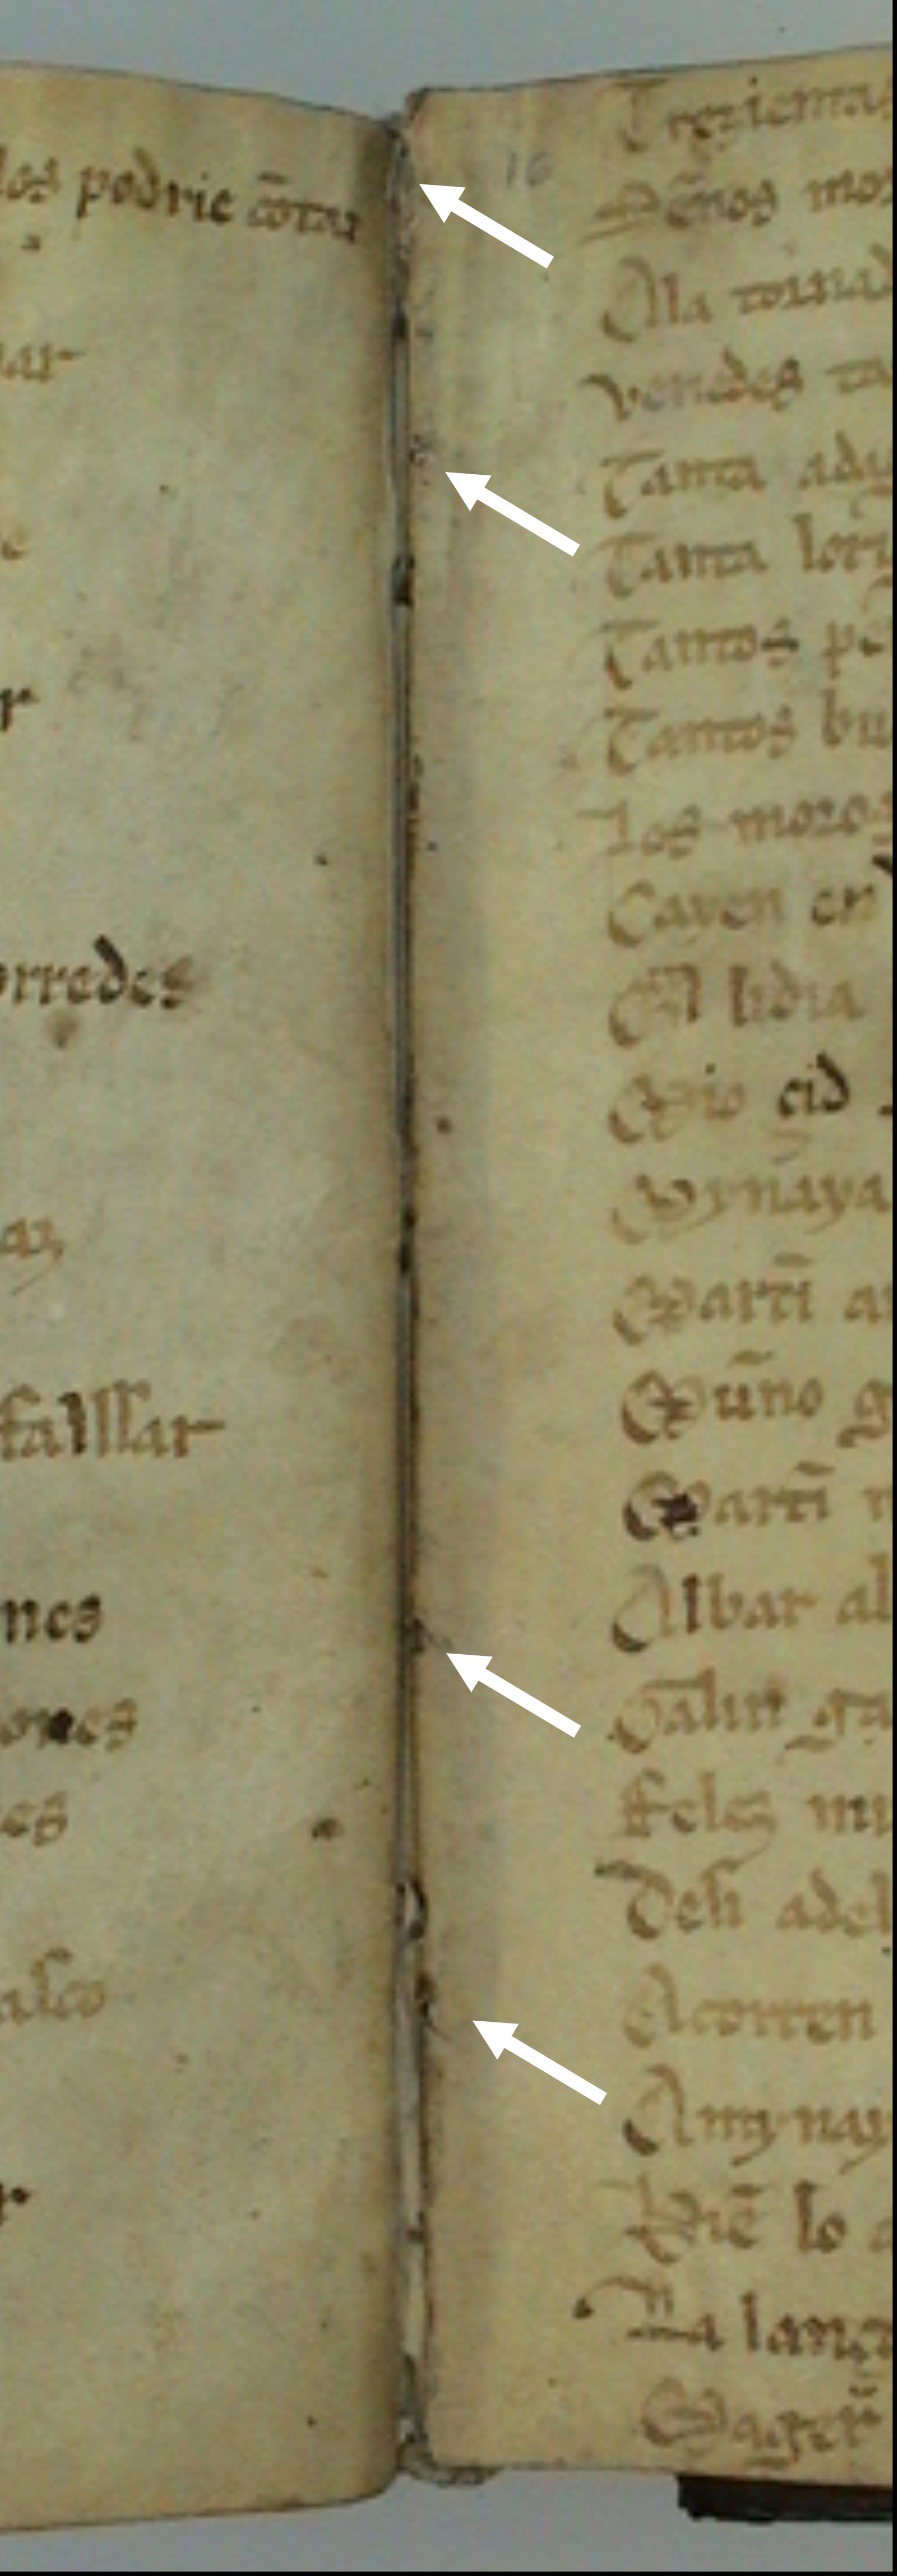 los podrie cõtar
ar
e
r
orredes
az
falssar
nes
ones
es
asco
r
16
Trezientas
Señas mo
Alla tornad
veriedes ta
Tanta ada
Tanta lori
Tantos pe
Tantos bu
Los moros
Cayen en
Al lidia
Myo çid
Mynaya
Martĩ an
Muño g
Martĩ m
Albar al
Galin ga
Felez mu
Desi adel
Acorren
A mynay
Biẽ lo a
La lança
Mager